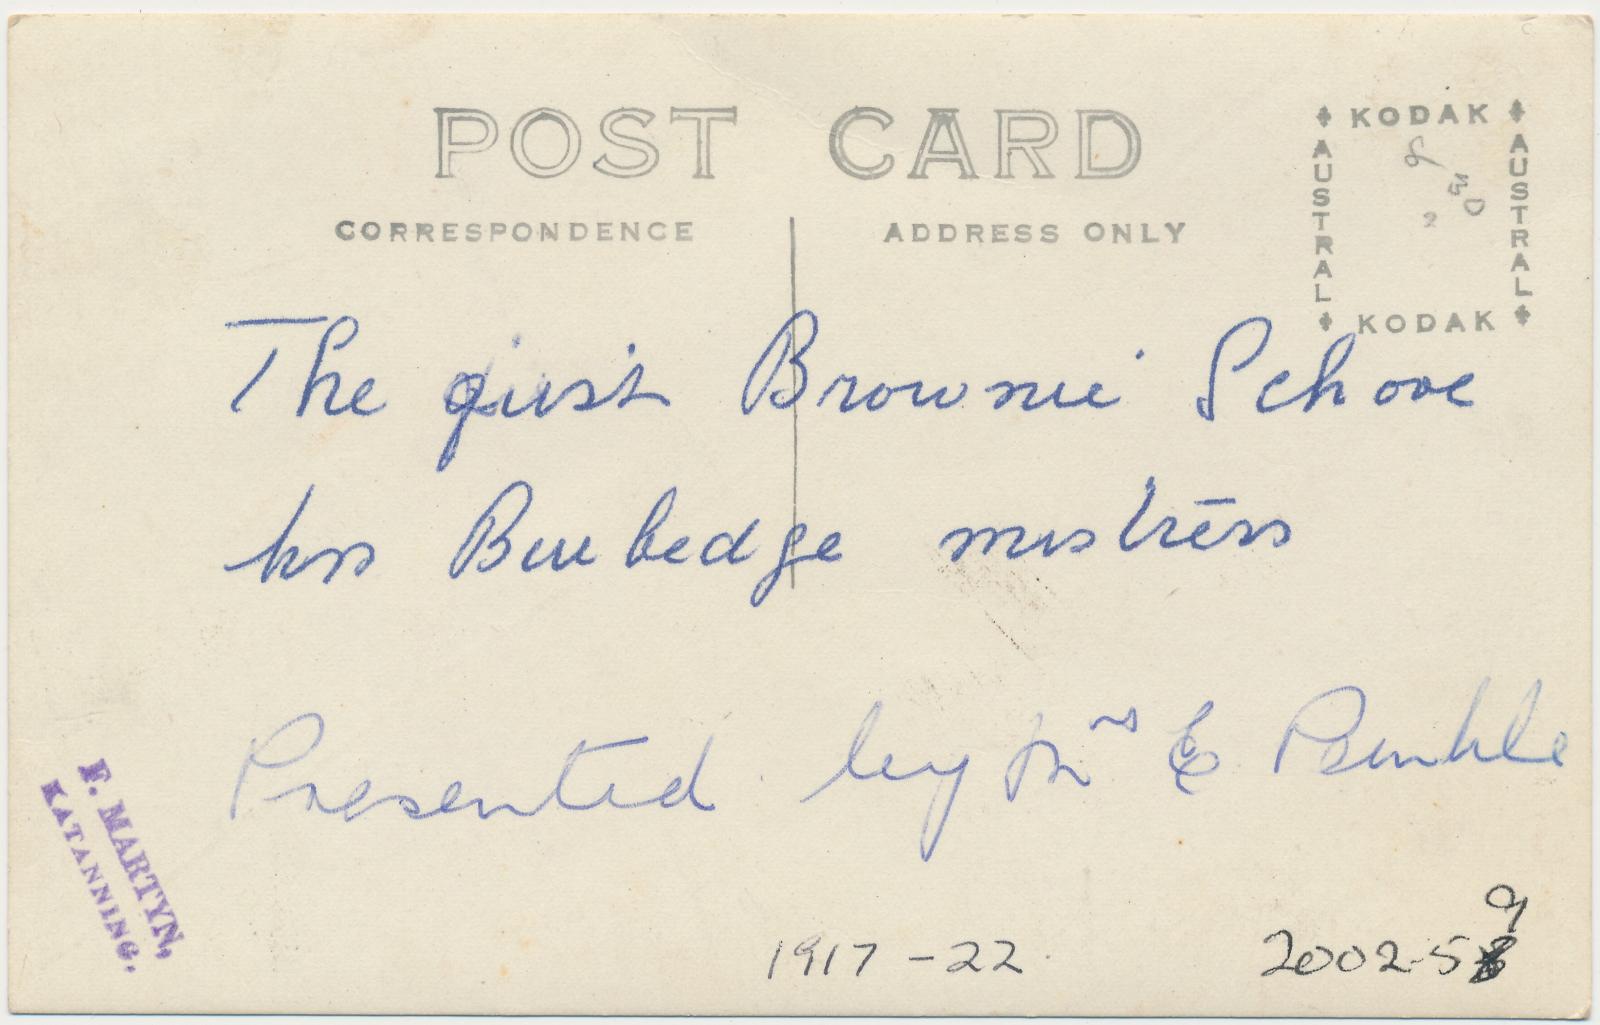 POST CARD
CORRESPONDENCE
ADDRESS ONLY
KODAK
AUSTRAL
AUSTRAL
KODAK
The first Brownie School
Miss Burbedge mistress
Presented by Mrs E
F. MARTYN,
KATANNING.
1917-22
9
2002-5